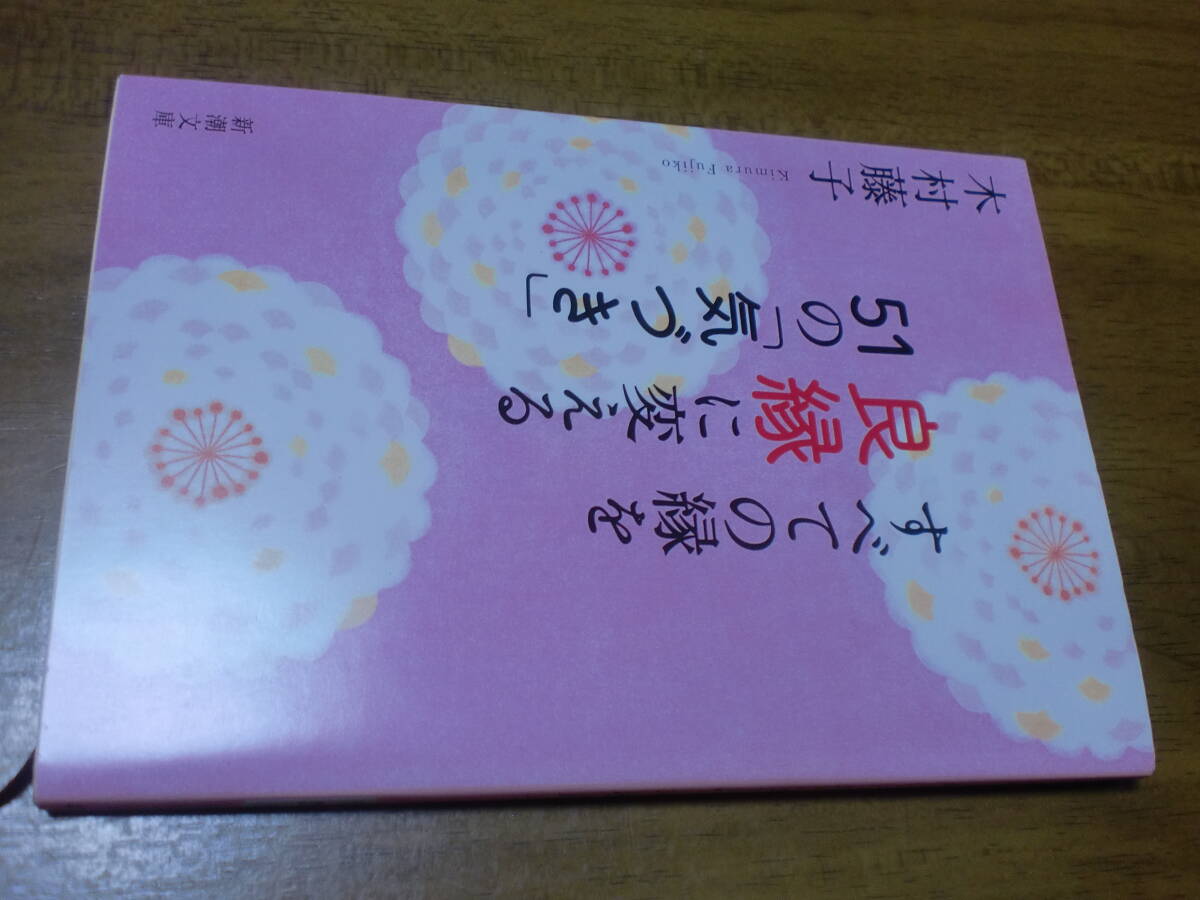 すべての縁を
良縁に変える
51の「気づき」
木村藤子
Kimura Fujiko
新潮文庫